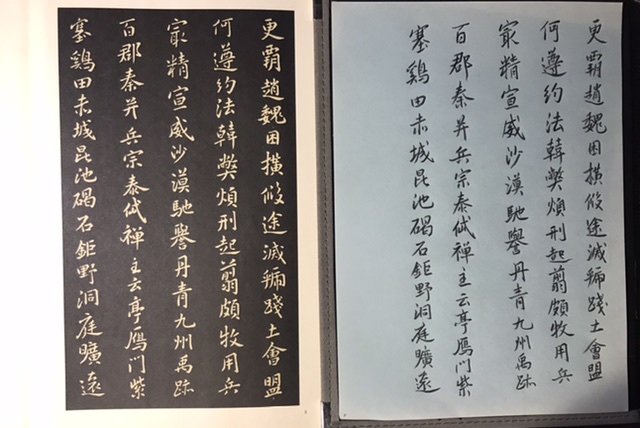 更霸趙魏困橫假途滅虢踐土會盟
何遵約法韓弊煩刑起翦頗牧用兵
㝡精宣威沙漠馳譽丹青九州禹跡
百郡秦并兵宗泰岱禪主云亭鴈門紫
塞鷄田赤城昆池碣石鉅野洞庭曠遠
更霸趙魏困橫假途滅虢踐土會盟
何遵約法韓弊煩刑起翦頗牧用兵
㝡精宣威沙漠馳譽丹青九州禹跡
百郡秦并兵宗泰岱禪主云亭鴈門紫
塞鷄田赤城昆池碣石鉅野洞庭曠遠